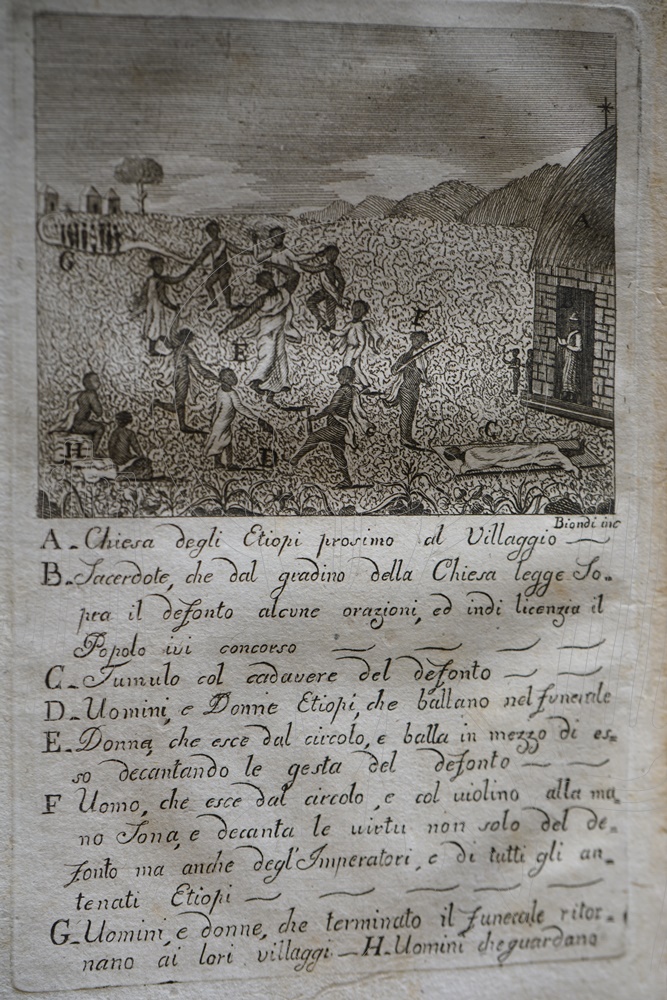 A
G
F
E
C
H
D
Biondi inc
A - Chiesa degli Etiopi prosimo al Villaggio
B - Sacerdote, che dal gradino della Chiesa legge So=
pra il defonto alcune orazioni, ed indi licenzia il
Popolo ivi concorso
C - Tumulo col cadavere del defonto
D - Uomini, e Donne Etiopi, che ballano nel funerale
E - Donna, che esce dal circolo, e balla in mezzo di es=
so decantando le gesta del defonto
F Uomo, che esce dal circolo, e col violino alla ma=
no Sona, e decanta le virtu non solo del de=
fonto ma anche degl'Imperatori, e di tutti gli an=
tenati Etiopi
G - Uomini, e donne, che terminato il funerale ritor=
nano ai lori villaggi - H - Uomini che guardano